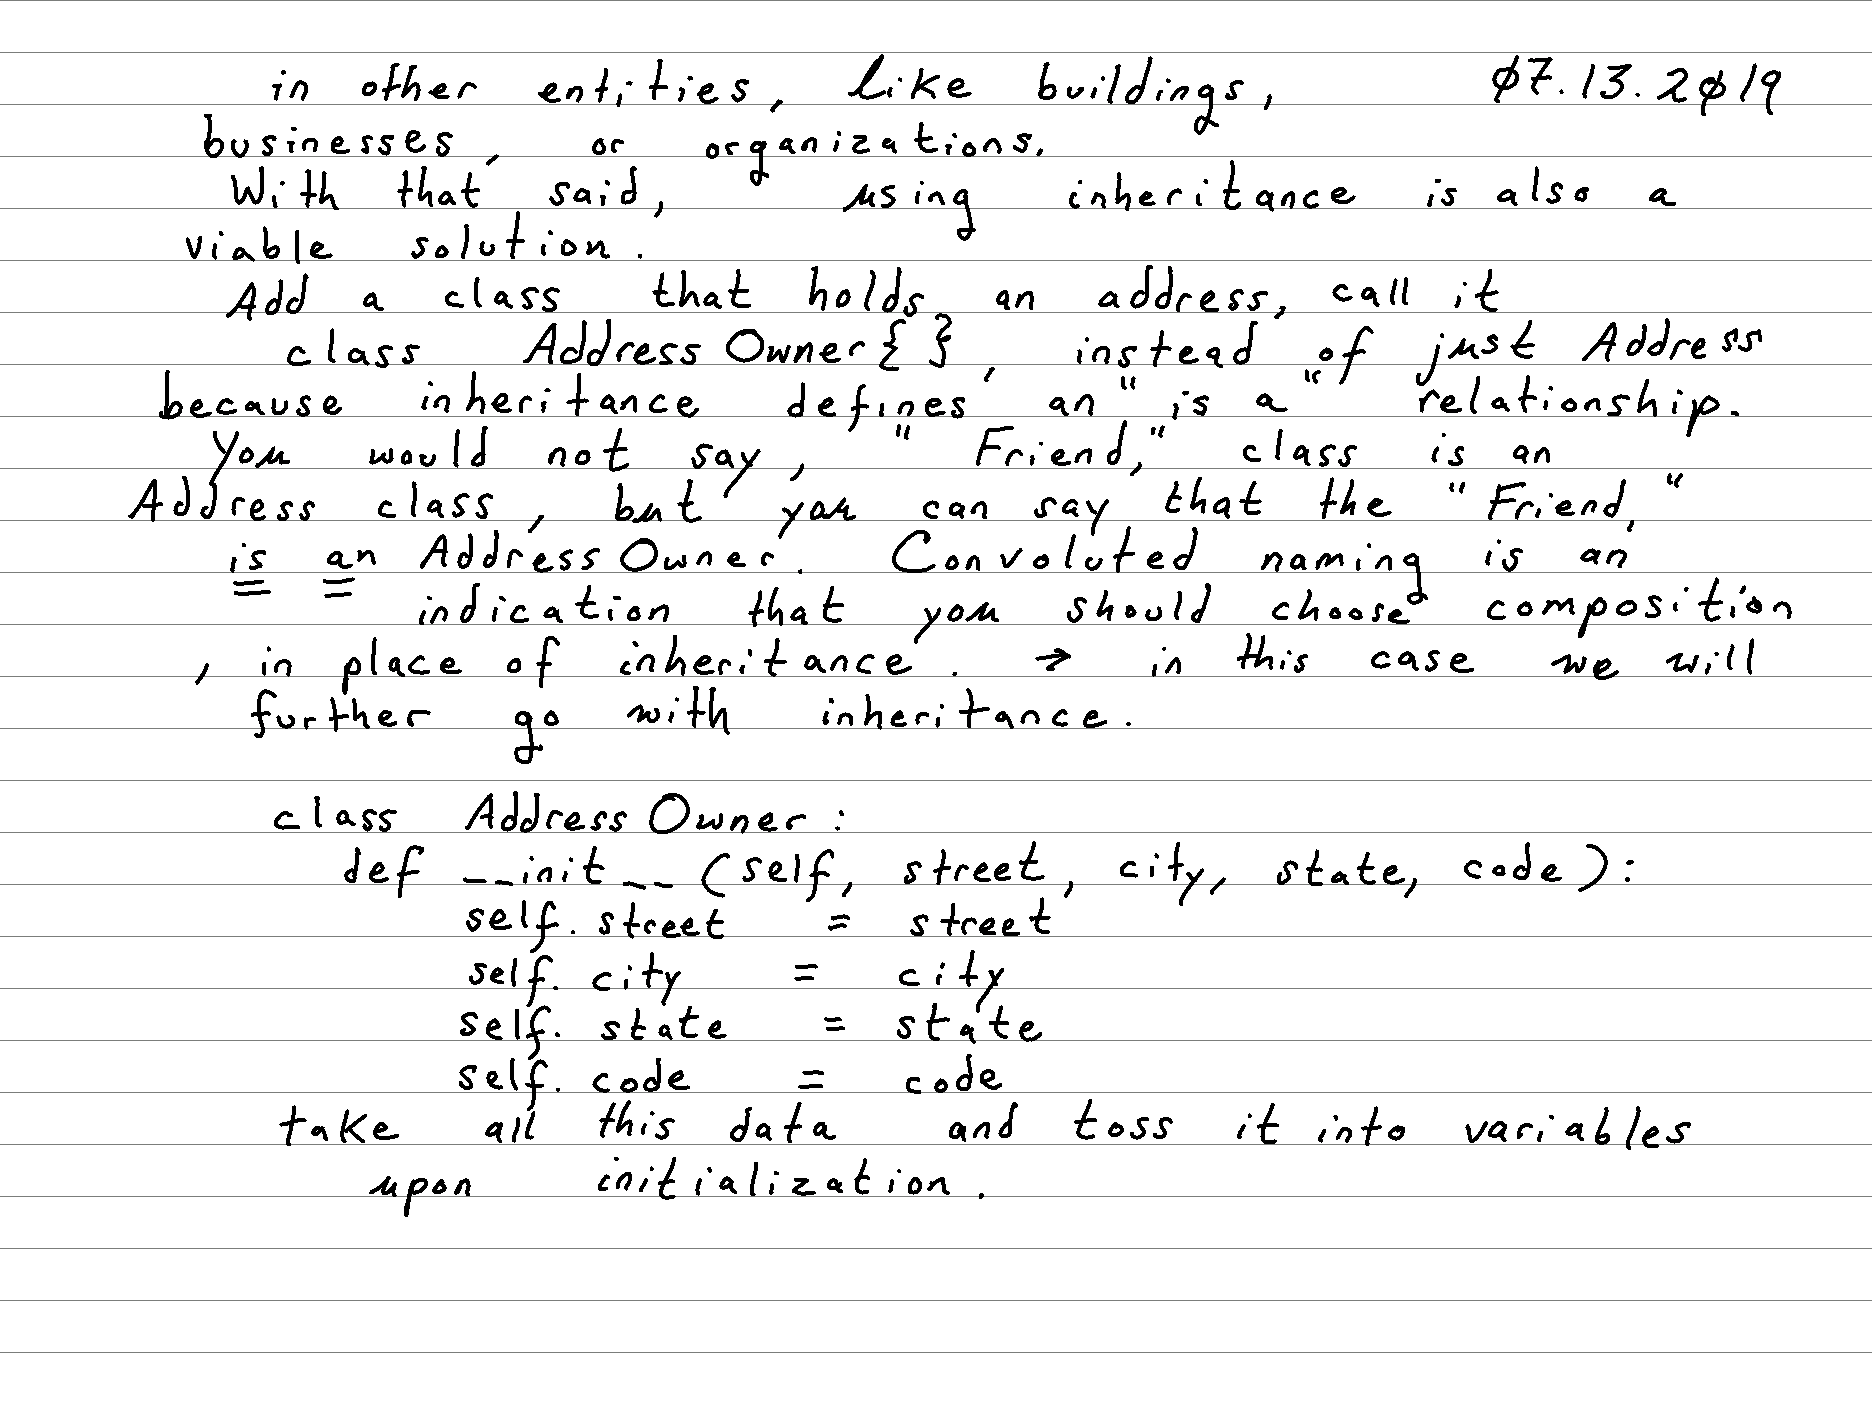 in other entities, like buildings, 07.13.2019
businesses, or organizations.
With that said, using inheritance is also a
viable solution.
Add a class that holds an address, call it
class AddressOwner{ }, instead of just Address
because inheritance defines an "is a" relationship.
You would not say, "Friend," class is an
Address class, but you can say that the "Friend,"
is an AddressOwner. Convoluted naming is an
indication that you should choose composition
, in place of inheritance. → in this case we will
further go with inheritance.
class AddressOwner:
def __init__(self, street, city, state, code):
self.street = street
self.city = city
self.state = state
self.code = code
take all this data and toss it into variables
upon initialization.